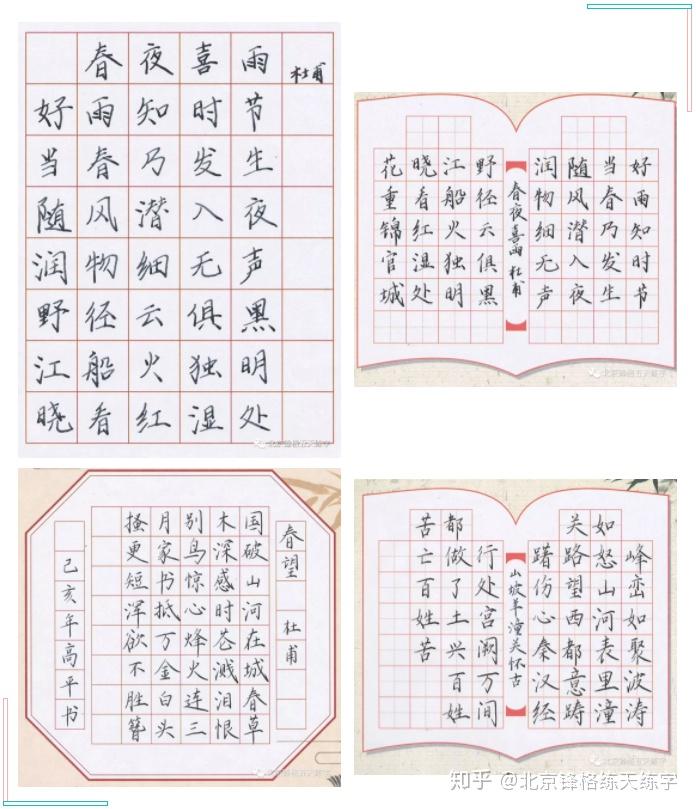 春夜喜雨 杜甫
好雨知时节
当春乃发生
随风潜入夜
润物细无声
野径云俱黑
江船火独明
晓看红湿处
北京锋格五天练字
好雨知时节
当春乃发生
随风潜入夜
润物细无声
春夜喜雨 杜甫
野径云俱黑
江船火独明
晓看红湿处
花重锦官城
北京锋格五天练字
春望 杜甫
国破山河在城春草
木深感时花溅泪恨
别鸟惊心烽火连三
月家书抵万金白头
搔更短浑欲不胜簪
己亥年高平书
北京锋格五天练字
峰峦如聚波涛
如怒山河表里潼
关路望西都意踌
躇伤心秦汉经
山坡羊潼关怀古
行处宫阙万间
都做了土兴百姓
苦亡百姓苦
知乎 @北京锋格练天练字